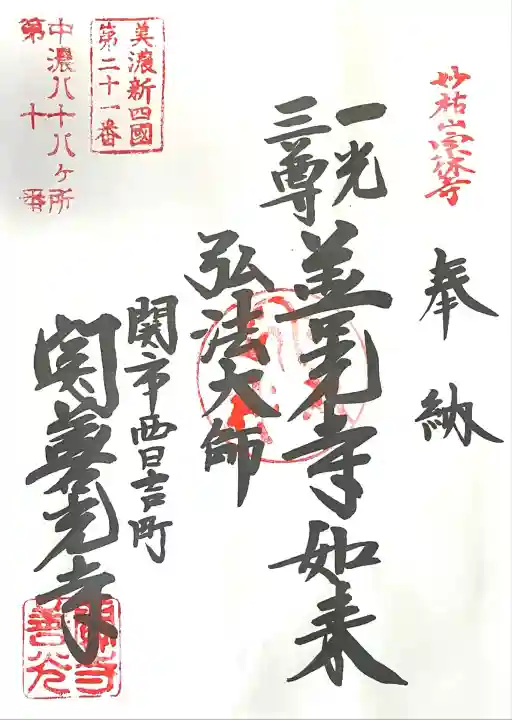 妙祐山宗休寺
奉納
一光
三尊
善光寺如来
弘法大師
関市西日吉町
関善光寺
美濃新四國
第二十一番
中濃八十八ヶ所
第十番
関善光寺